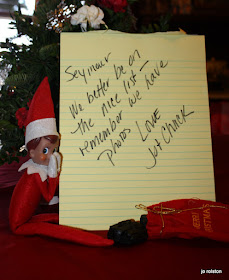 Seymour
We better be on
the nice list -
remember we have
photos Love
Jot Chock
MERRY
CHRISTMAS
jo rolston